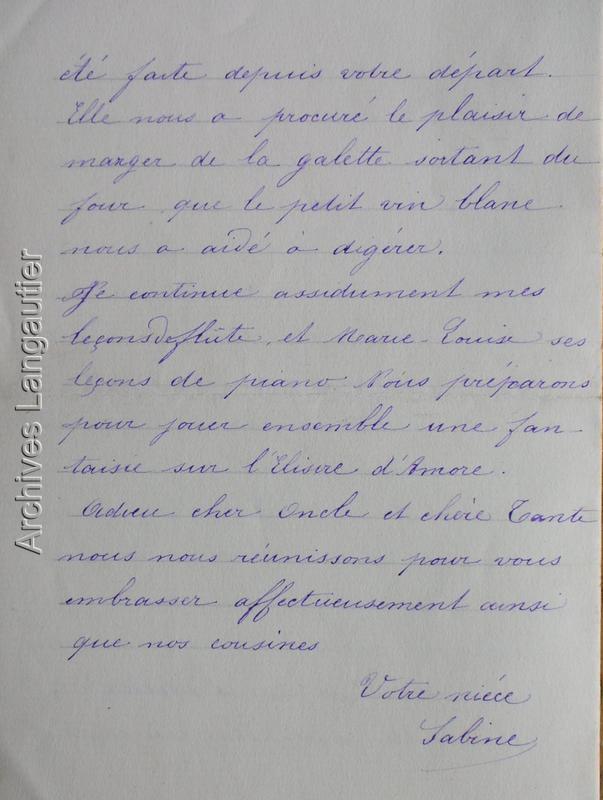 été faite depuis votre départ.
Elle nous a procuré le plaisir de
manger de la galette sortant du
four que le petit vin blanc
nous a aidé à digérer.
Je continue assidument mes
leçons de flûte, et Marie-Louise ses
leçons de piano. Nous préparons
pour jouer ensemble une fan-
taisie sur l'Elisire d'Amore.
Adieu cher Oncle et chère Tante
nous nous réunissons pour vous
embrasser affectueusement ainsi
que nos cousines
Votre nièce
Sabine
Archives Langautier